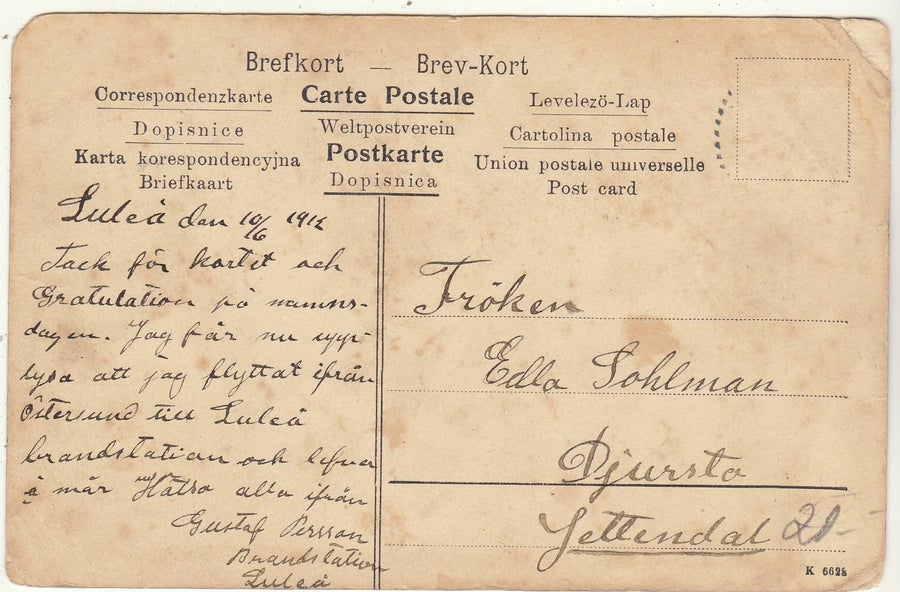 Brefkort — Brev-Kort
Correspondenzkarte Carte Postale Levelezö-Lap
Dopisnice Weltpostverein Cartolina postale
Karta korespondencyjna Postkarte Union postale universelle
Briefkaart Dopisnica Post card
Luleå den 10/6 1912
Tack för kortet och
Gratulation på namns-
dagen. Jag får nu upp-
lysa att jag flyttat ifrån
Östersund till Luleå
brandstation och lefver
å mår Hälsa alla ifrån
Gustaf Persson
Brandstation
Luleå
Fröken
Edla Sohlman
Djursta
Jettendal 20-
K 6628